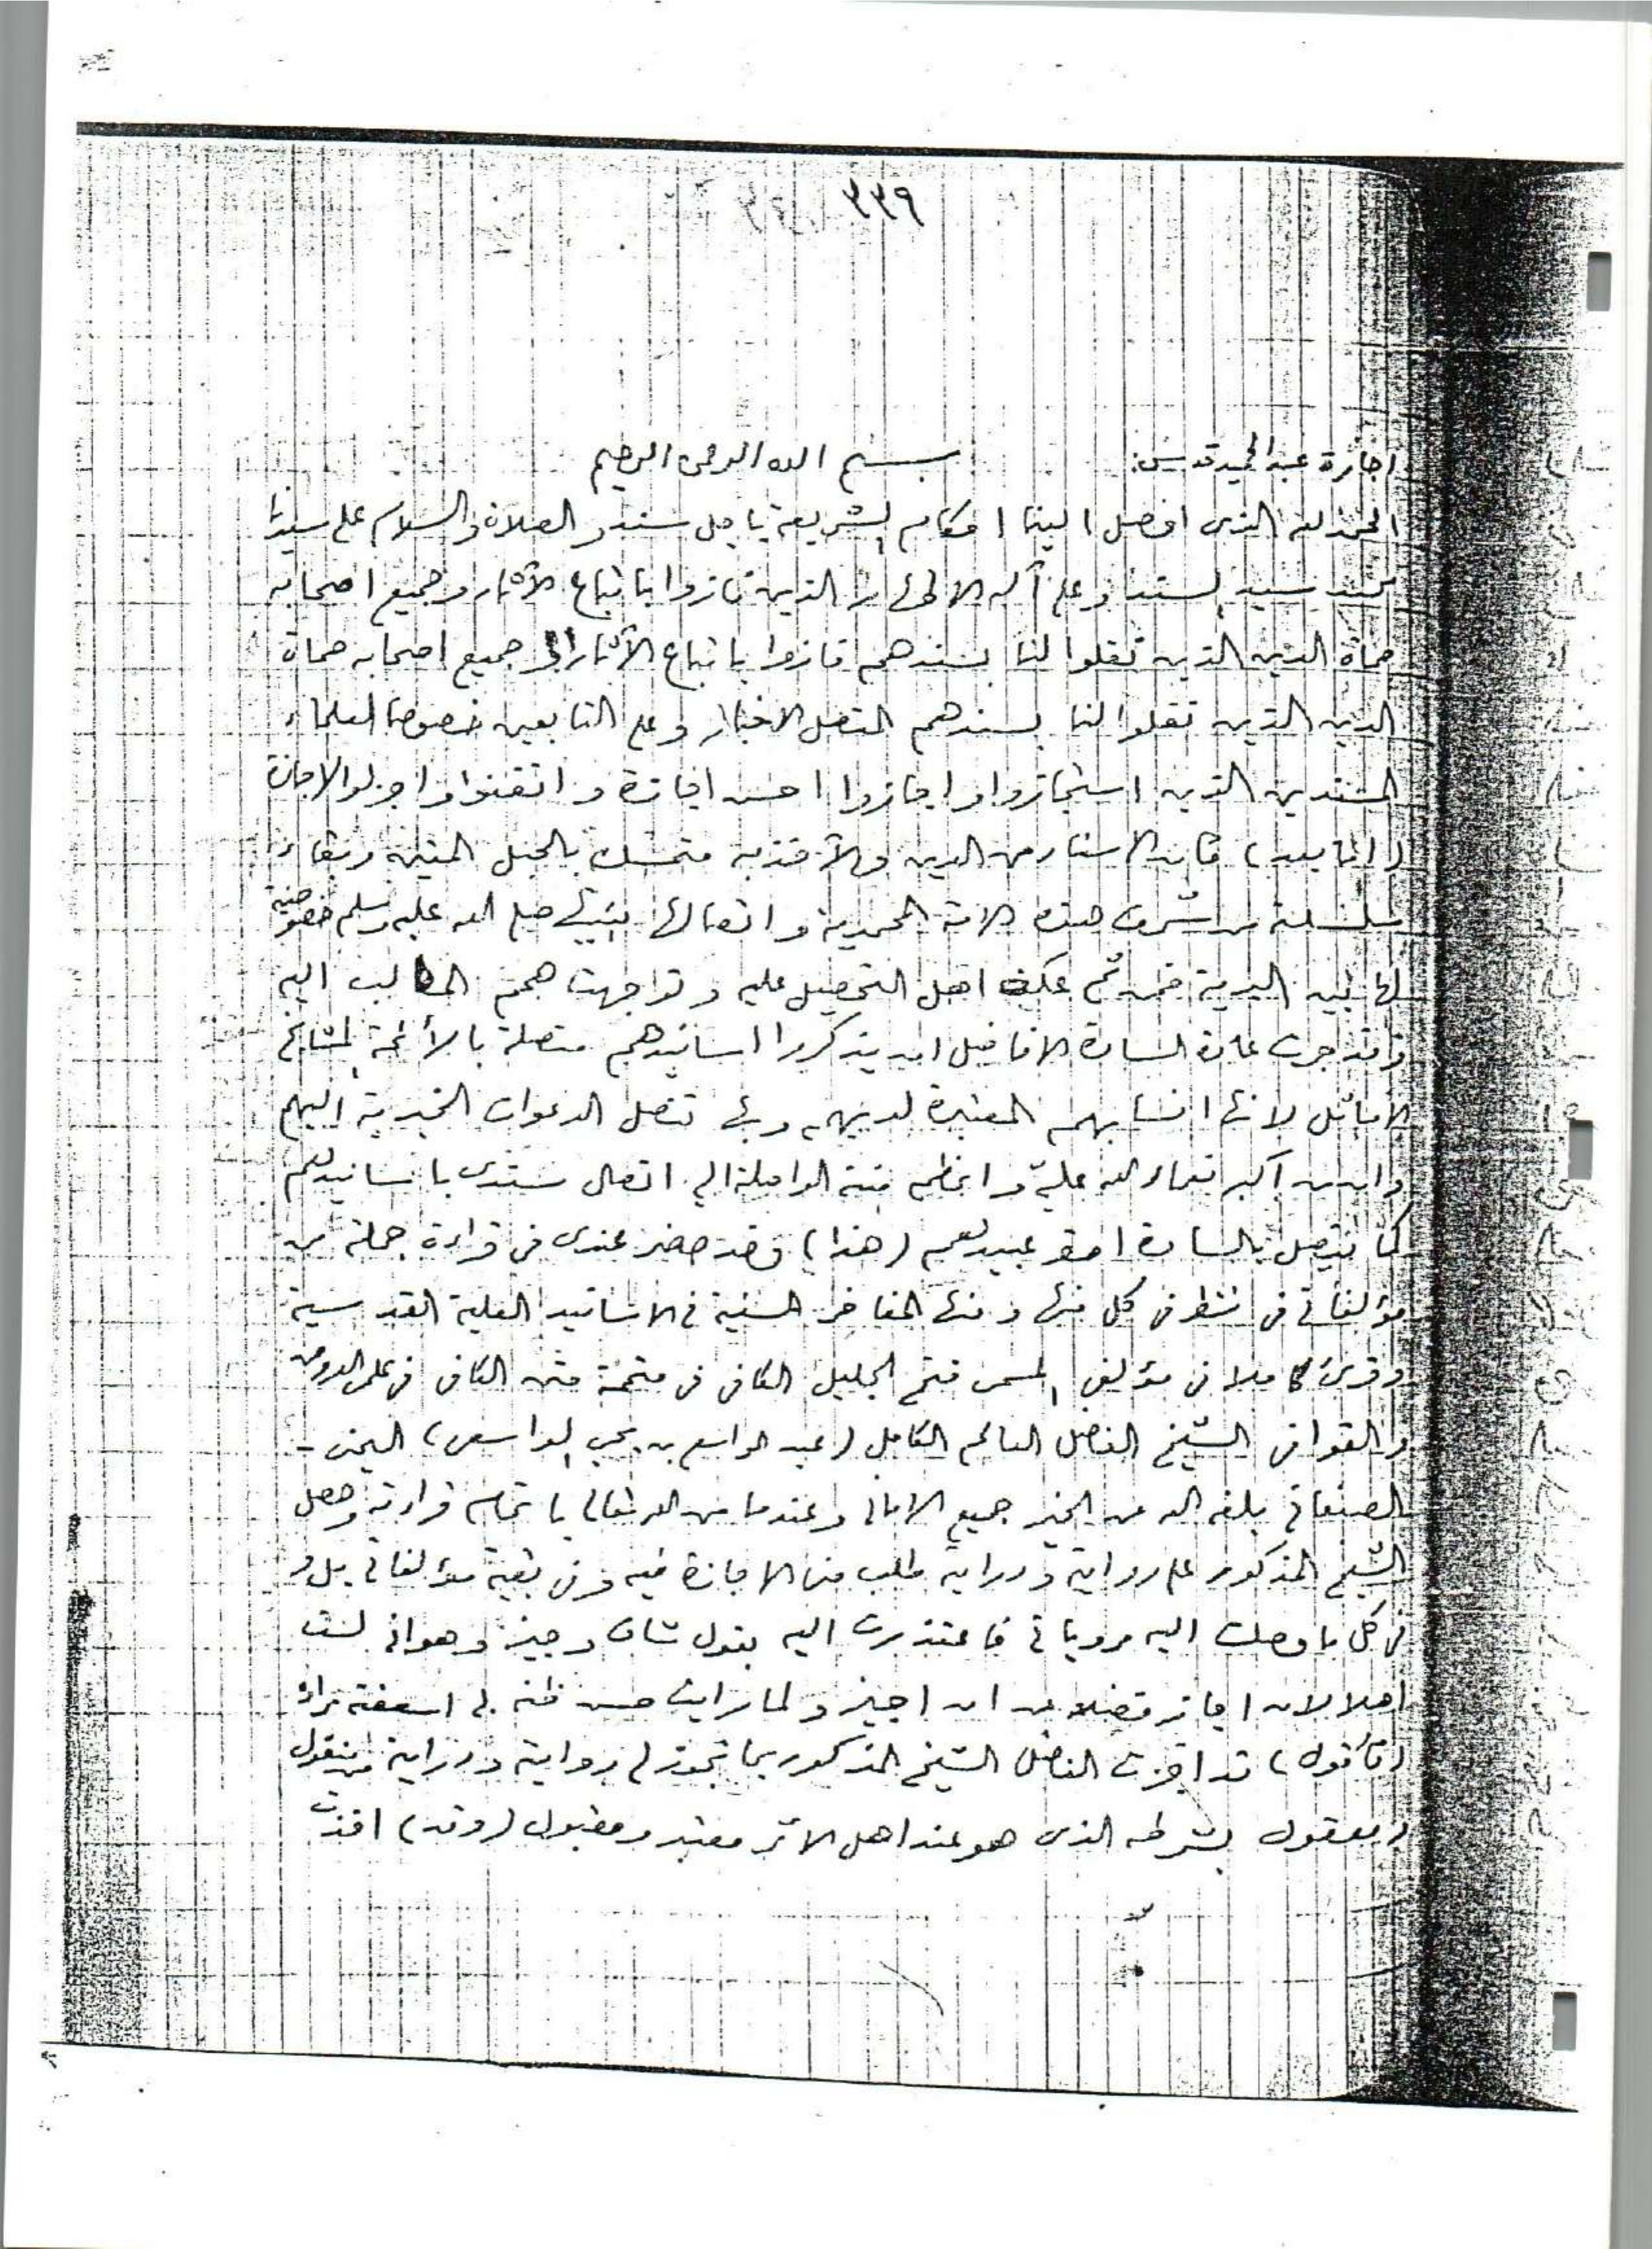 ٣٣٩
اجازة عبدالحميد قدس:
بسم الله الرحمن الرحيم
الحمد لله الذى اوصل الينا احكام الشريعة باجل سند والصلاة والسلام على سيدنا
محمد سيد السند وعلى آله الاطهار الذين فازوا باتباع الآثار وجميع اصحابه
حماة الدين الذين نقلوا لنا بسندهم فازوا باتباع الآثار جميع اصحابه حماة
الدين الذين نقلوا لنا بسندهم المتصل الاخبار وعلى التابعين خصوصا العلماء
المسندين الذين استجازوا واجازوا احسن اجازة واتقنوا
(اما بعد) فان الاسناد من الدين والآخذ به متمسك بالحبل المتين وبقاء
سلسلة من شرف هذه الامة المحمدية واتصالها بنبيها صلى الله عليه وسلم خصوصية
لها بين البرية فمن ثم عكف اهل التحصيل عليه وتوجهت همم الطالب اليه
وقد جرت عادة السادة الافاضل ان يذكروا اسانيدهم متصلة بالأئمة المشايخ
الاماثل لانها انسابهم المعتبرة لديهم وبها تتصل الدعوات الخيرية اليهم
وان من أكبر نعماء الله عليّ واعظم مننه الواصلة الي اتصال سندى باسانيدهم
كما يتصل بالسادة احقر عبيدهم (هذا) وقد حضر عندى فى قراءة جملة من
مؤلفاتى فى كل منها ومنها المفاخر السنية فى الاسانيد العلية القدسية
وقرئ كاملا فى مؤلفى المسمى فتح الجليل الكافى فى متممة متن الكافى فى علمى العروض
والقوافى الشيخ الفاضل العالم الكامل (عبد الواسع بن يحيى الواسعى) اليمنى -
الصنعانى بلغه الله من الخير جميع الامانى وعندما من الله تعالى باتمام قراءته وحصل
الشيخ المذكور على رواية ودراية طلب منى الاجازة فيه وفى بقية مؤلفاتى بل و
فى كل ما وصلت اليه مروياتى فاعتذرت اليه بقول شاف وجيز وهو انى لست
اهلا لان اجاز فضلا عن ان اجيز ولما رايت حسن ظنه بى اسعفته مراده
(فأقول) قد اجزت الفاضل الشيخ المذكور بما تجوز لى رواية ودراية من منقول
ومعقول بشرطه الذى هو عند اهل الاثر معتبر ومقبول (وقد) اخذت